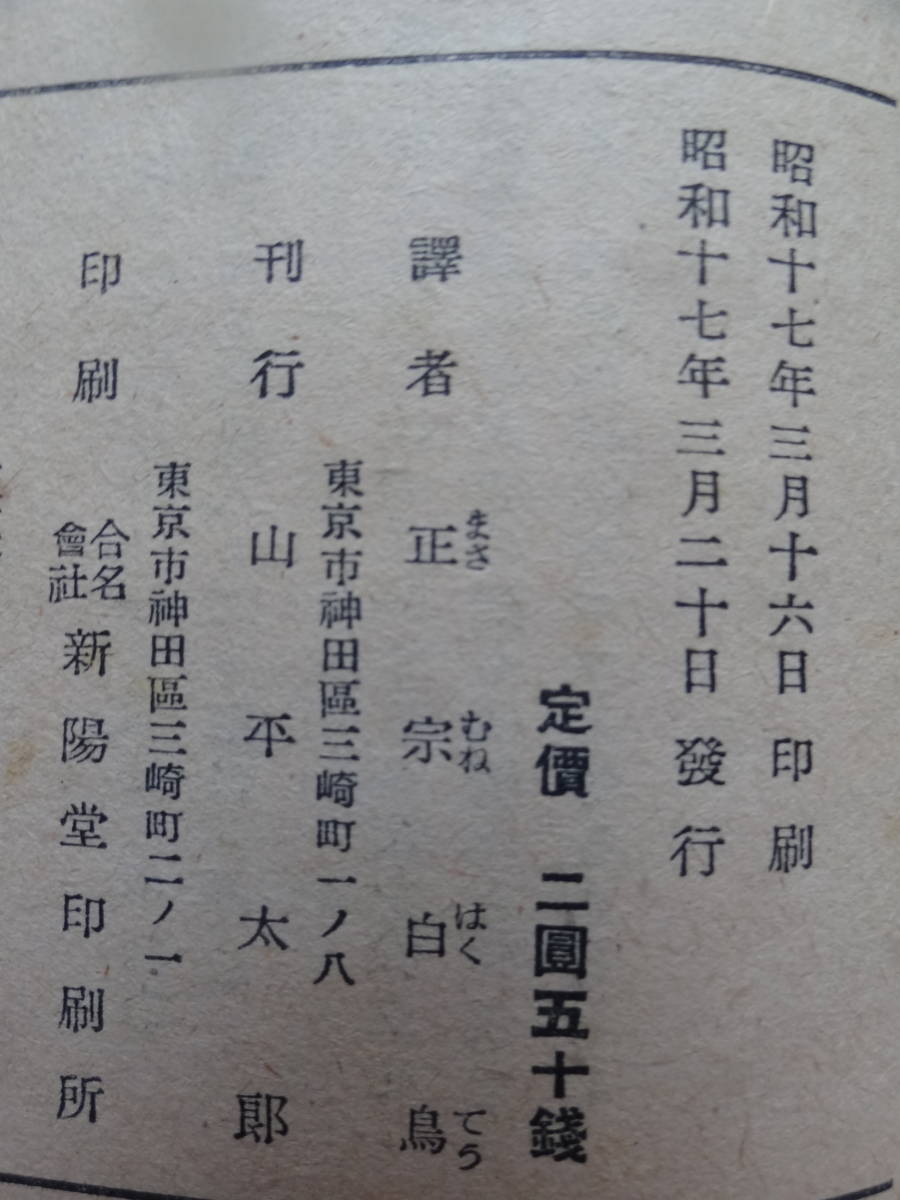 昭和十七年三月十六日印刷
昭和十七年三月二十日發行
定價 二圓五十錢
まさ むね はく てう
譯者 正宗白鳥
東京市神田區三崎町一ノ八
刊行 山平太郎
東京市神田區三崎町二ノ一
印刷 合名會社新陽堂印刷所